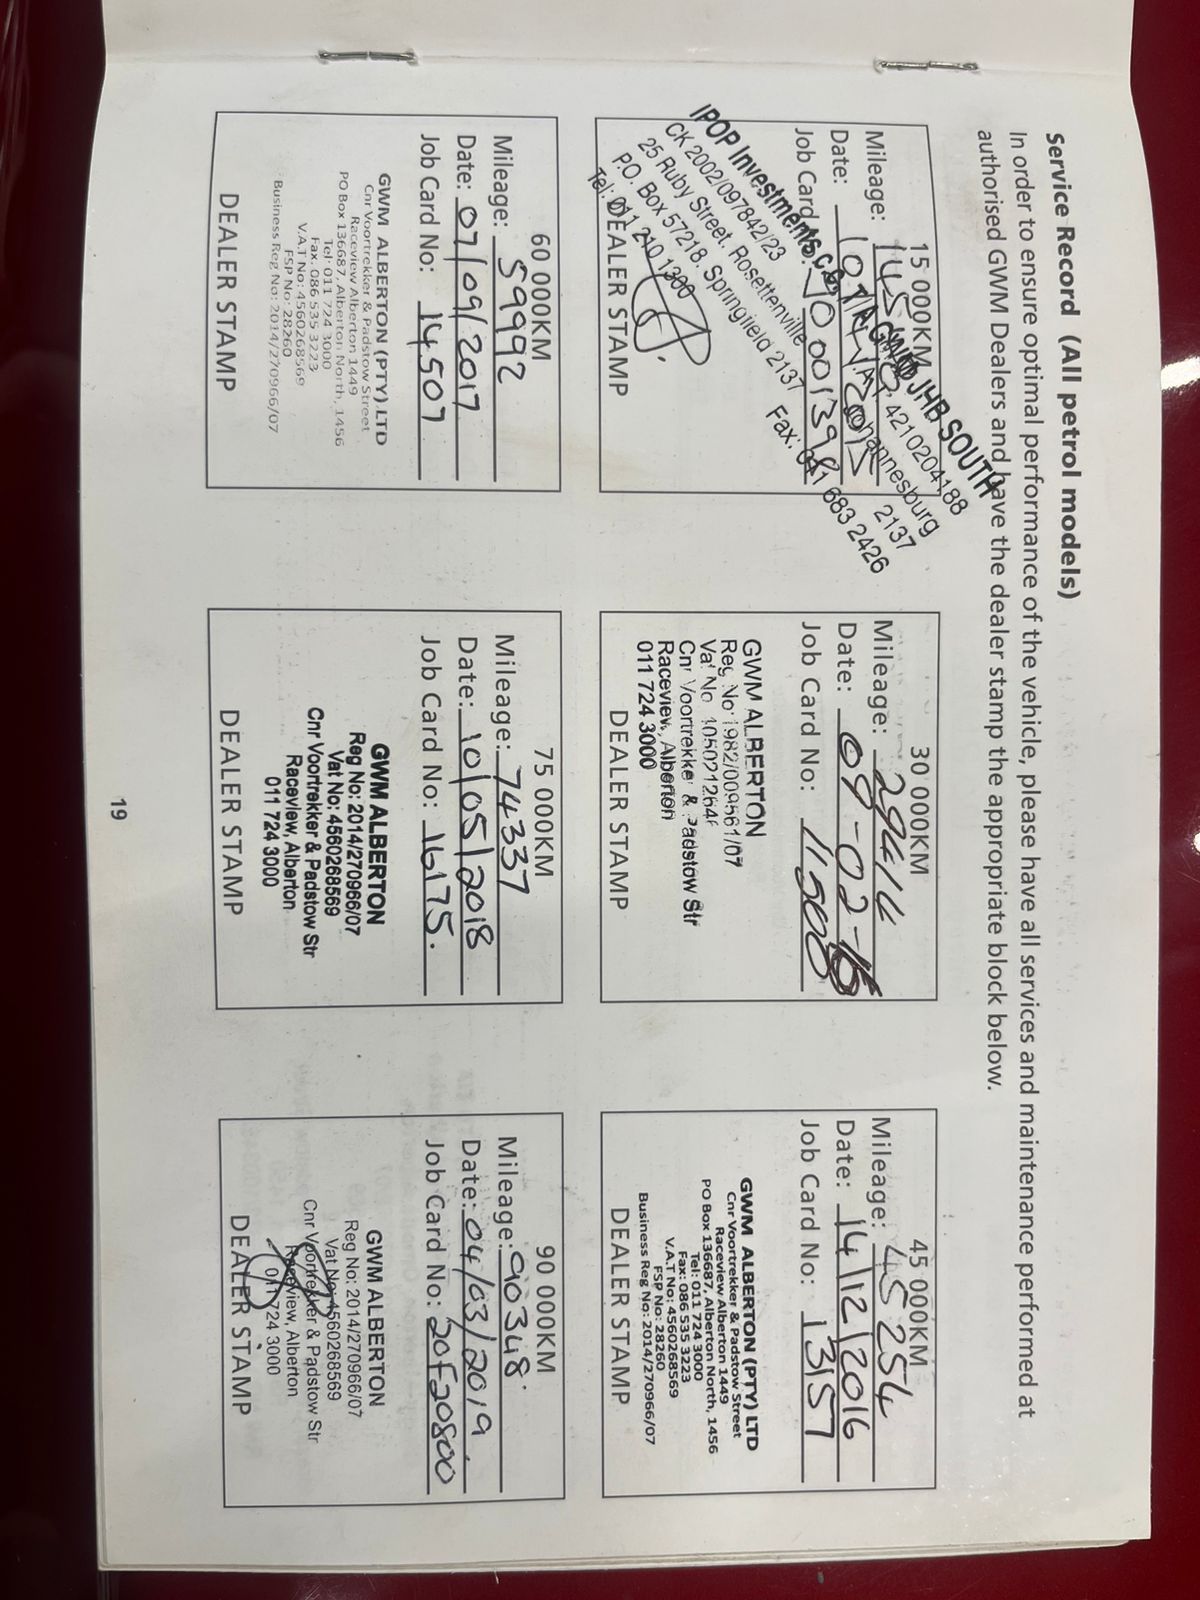 Service Record (All petrol models)
In order to ensure optimal performance of the vehicle, please have all services and maintenance performed at
authorised GWM Dealers and have the dealer stamp the appropriate block below.
15 000KM
Mileage:
Date:
Job Card
IPOP Investments
T/A GWM JHB SOUTH
CK 2002/097842/23
4210204188
25 Ruby Street, Rosettenville
Johannesburg
P.O. Box 57218, Springfield 2137
2137
Tel: 011 210 1300
Fax: 011 683 2426
DEALER STAMP
30 000KM
Mileage: 29414
Date: 09-02-16
Job Card No: 11508
GWM ALBERTON
Reg No: 1982/009561/07
Vat No
Cnr Voortrekker & Padstow Str
Raceview, Alberton
011 724 3000
DEALER STAMP
45 000KM
Mileage: 45254
Date: 14/12/2016
Job Card No: 13157
GWM ALBERTON (PTY) LTD
Cnr Voortrekker & Padstow Street
Raceview Alberton 1449
PO Box 136687, Alberton North, 1456
Tel: 011 724 3000
Fax: 086 535 3223
V.A.T No: 4560268569
FSP No: 28260
Business Reg No: 2014/270966/07
DEALER STAMP
60 000KM
Mileage: 59992
Date: 07/09/2017
Job Card No: 14507
GWM ALBERTON (PTY) LTD
Cnr Voortrekker & Padstow Street
Raceview Alberton 1449
PO Box 136687, Alberton North, 1456
Tel: 011 724 3000
Fax: 086 535 3223
V.A.T No: 4560268569
FSP No: 28260
Business Reg No: 2014/270966/07
DEALER STAMP
75 000KM
Mileage: 74337
Date: 10/05/2018
Job Card No: 16175.
GWM ALBERTON
Reg No: 2014/270966/07
Vat No: 4560268569
Cnr Voortrekker & Padstow Str
Raceview, Alberton
011 724 3000
DEALER STAMP
90 000KM
Mileage: 90348.
Date: 04/03/2019.
Job Card No: 20F20800
GWM ALBERTON
Reg No: 2014/270966/07
Vat No: 4560268569
Cnr Voortrekker & Padstow Str
Raceview, Alberton
011 724 3000
DEALER STAMP
19